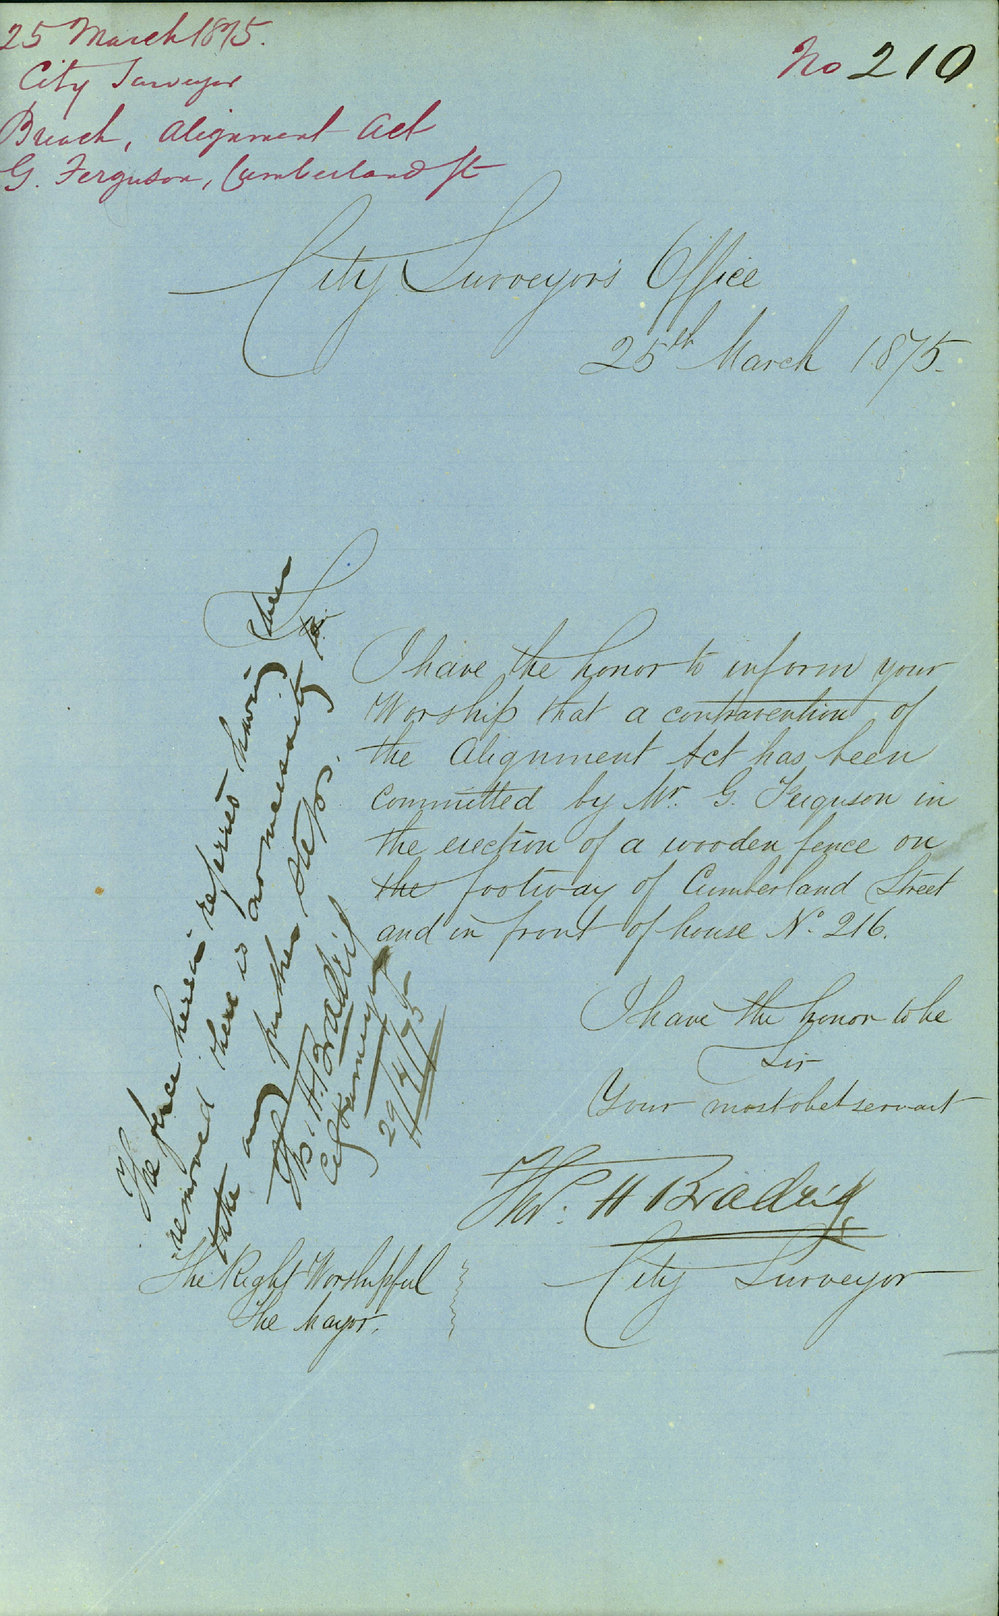 25 March 1875.
No 210
City Surveyor
Breach, Alignment Act
G. Ferguson, Cumberland St
City Surveyor's Office
25th March 1875.
Sir
I have the honor to inform your
Worship that a contravention of
the Alignment Act has been
committed by Mr. G. Ferguson in
the erection of a wooden fence on
the footway of Cumberland Street
and in front of house No. 216.
I have the honor to be
Sir
Your most obet servant
Thos. H Bradridge
City Surveyor
The Right Worshipful
The Mayor.
The fence herein referred having been
removed there is no necessity to
take any further steps.
Thos. H Bradridge
City Surveyor
29/4/75